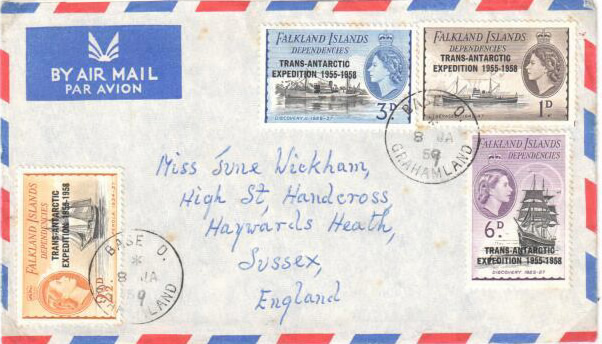 BY AIR MAIL
PAR AVION
FALKLAND ISLANDS
DEPENDENCIES
TRANS-ANTARCTIC
EXPEDITION 1955-1958
3D
DISCOVERY II 1929-37
FALKLAND ISLANDS
DEPENDENCIES
TRANS-ANTARCTIC
EXPEDITION 1955-1958
1D.
BASE D.
8 JA
59
GRAHAMLAND
FALKLAND ISLANDS
DEPENDENCIES
6D.
TRANS-ANTARCTIC
EXPEDITION 1955-1958
DISCOVERY 1925-27
Miss June Wickham,
High St, Handcross,
Haywards Heath,
Sussex,
England
FALKLAND ISLANDS
DEPENDENCIES
TRANS-ANTARCTIC
EXPEDITION 1955-1958
2½D
BASE D.
8 JA
59
GRAHAMLAND